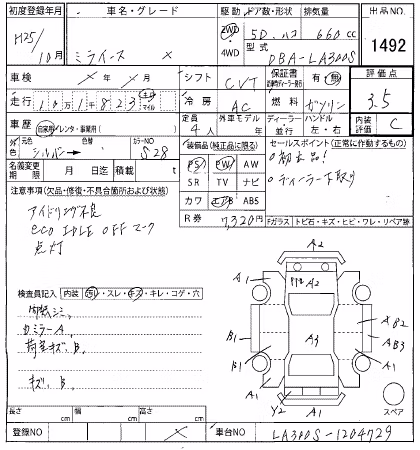 初度登録年月 車名・グレード 駆動 ドア数・形状 排気量 出品NO.
H25/10月 ミライース X 2WD 4WD 5D.ハコ 660cc
型式 DBA-LA300S
1492
車検 年 月 シフト CVT 保証書 有 無 評価点
走行 10万1千823 キロ マイル 冷房 AC 燃料 ガソリン 3.5
車歴 自家用/レンタ・事業用( ) 定員 4人 外車モデル 年 ディーラー 並行 ハンドル 左・右 内装 C
色 元色 シルバー 色替 カラーNO S28
名義変更期限 月 日 積載 t
装備品(純正品に限る) セールスポイント(正常に動作するもの)
PS PW AW
SR TV ナビ
カワ エアB ABS
R券 7,320円
○初出品!
○ディーラー下取り
注意事項(欠品・修復・不具合箇所および状態)
アイドリング不良
eco IDLE OFF マーク
点灯
Fガラス トビ石・キズ・ヒビ・ワレ・リペア跡
検査員記入 内装 汚レ・スレ・キズ・キレ・コゲ・穴
内張シミ.
カミラーA.
荷室キズ.B.
キズ.B.
A2
A1 A2 A1
B1 A3 A B2
A B3
B1 A1
A1 Y2 A1
スペア
長さ cm 幅 cm 高さ cm
登録NO X 車台NO LA300S-1204729